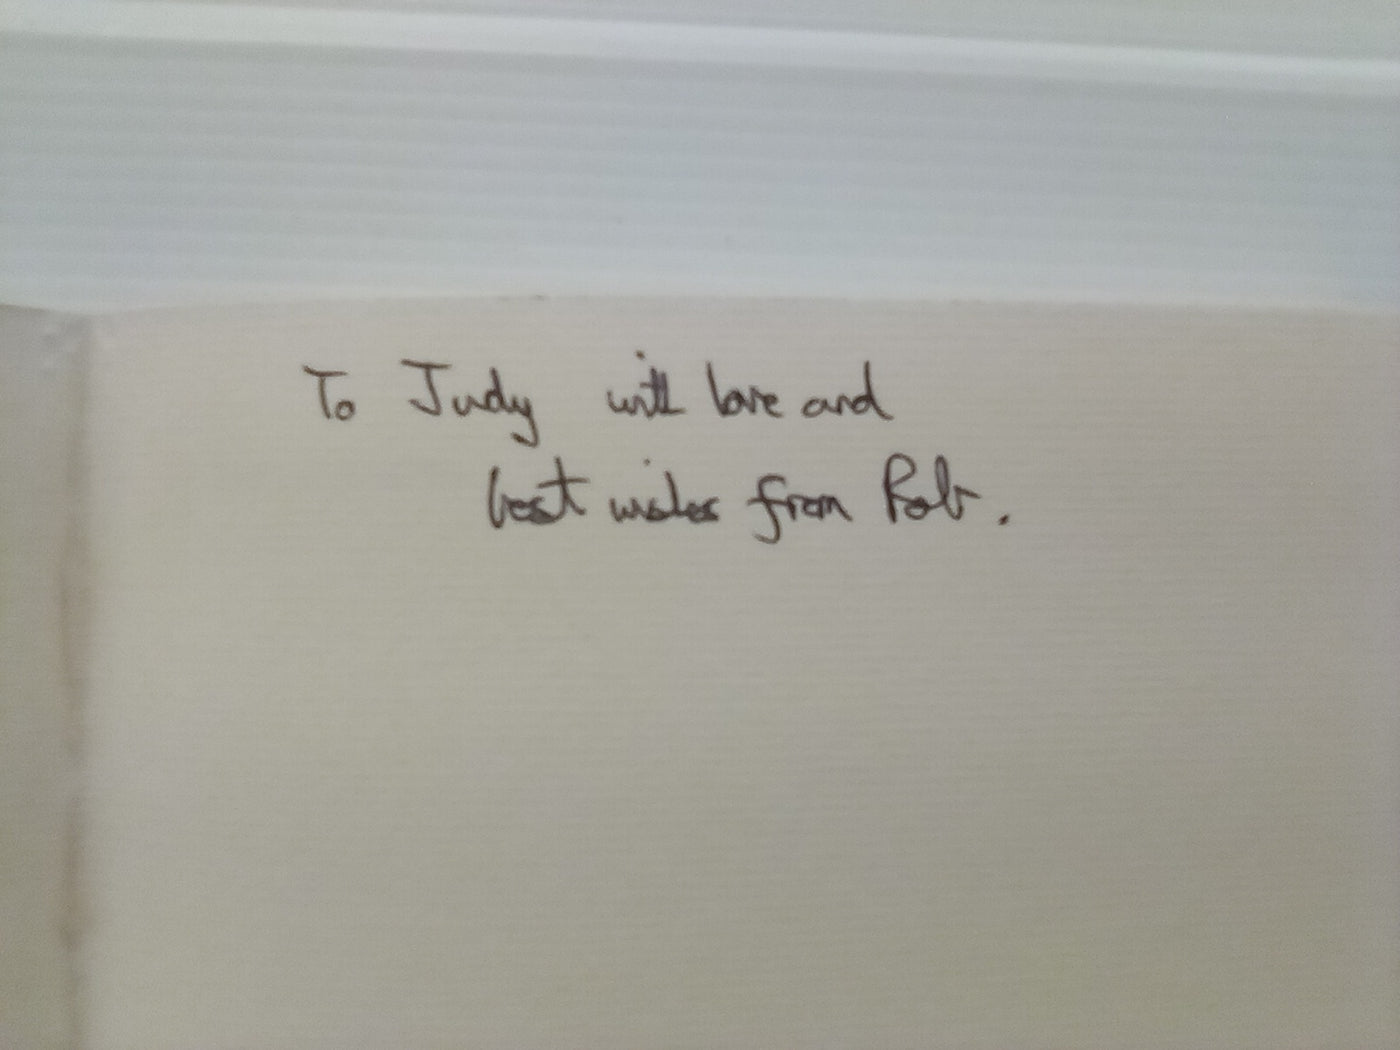 To Judy with love and
best wishes from Rob.